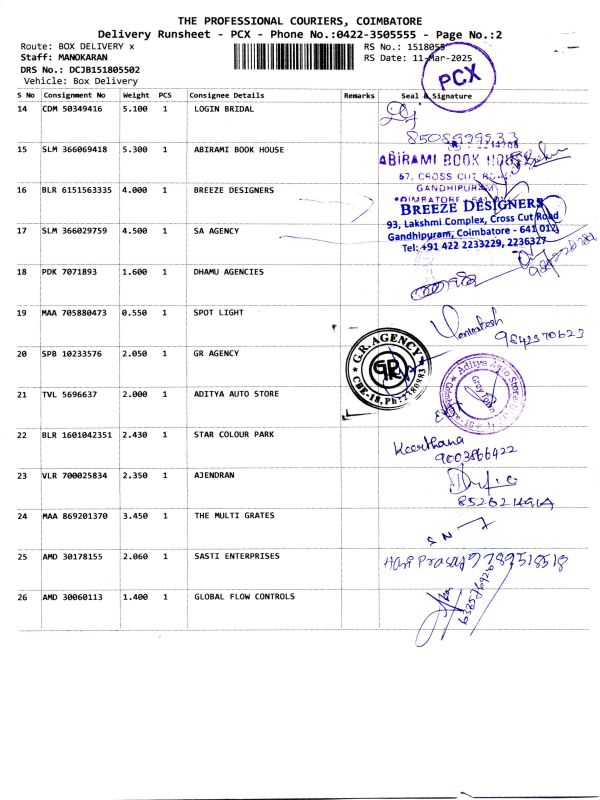 THE PROFESSIONAL COURIERS, COIMBATORE
Delivery Runsheet - PCX - Phone No.:0422-3505555 - Page No.:2
Route: BOX DELIVERY x RS No.: 1518055
Staff: MANOKARAN RS Date: 11-Mar-2025
DRS No.: DCJB151805502
Vehicle: Box Delivery
PCX
S No Consignment No Weight PCS Consignee Details Remarks Seal & Signature
14 CDM 50349416 5.100 1 LOGIN BRIDAL
15 SLM 366069418 5.300 1 ABIRAMI BOOK HOUSE
ABIRAMI BOOK HOUSE
67, CROSS CUT
GANDHIPURAM
16 BLR 6151563335 4.000 1 BREEZE DESIGNERS
BREEZE DESIGNERS
93, Lakshmi Complex, Cross Cut Road
Gandhipuram, Coimbatore - 641 012
Tel: +91 422 2233229, 2236327
17 SLM 366029759 4.500 1 SA AGENCY
18 PDK 7071893 1.600 1 DHAMU AGENCIES
19 MAA 705880473 0.550 1 SPOT LIGHT
9842370623
20 SPB 10233576 2.050 1 GR AGENCY
G.R. AGENCY
GR
CBE-18, Ph: 2180883
21 TVL 5696637 2.000 1 ADITYA AUTO STORE
Aditya Auto Store
22 BLR 1601042351 2.430 1 STAR COLOUR PARK
Keerthana
9003866422
23 VLR 700025834 2.350 1 AJENDRAN
24 MAA 869201370 3.450 1 THE MULTI GRATES
25 AMD 30178155 2.060 1 SASTI ENTERPRISES
Hari Prasad 9789518518
26 AMD 30060113 1.400 1 GLOBAL FLOW CONTROLS